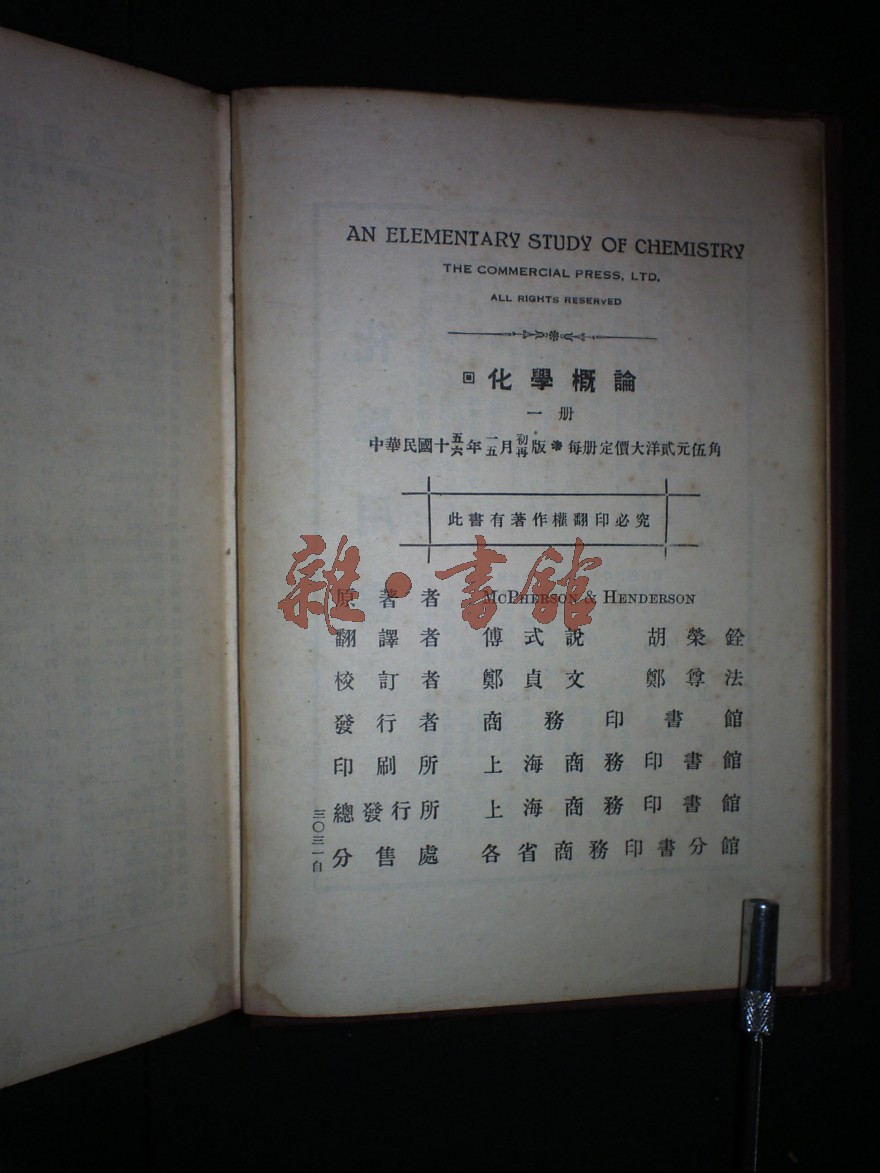 AN ELEMENTARY STUDY OF CHEMISTRY
THE COMMERCIAL PRESS, LTD.
ALL RIGHTS RESERVED
回化學概論
一册
中華民國十五六年一五月初再版 每册定價大洋貳元伍角
此書有著作權翻印必究
雜·書館
原著者 McPHERSON & HENDERSON
翻譯者 傅式說 胡榮銓
校訂者 鄭貞文 鄭尊法
發行者 商務印書館
印刷所 上海商務印書館
總發行所 上海商務印書館
分售處 各省商務印書分館
三〇三一自